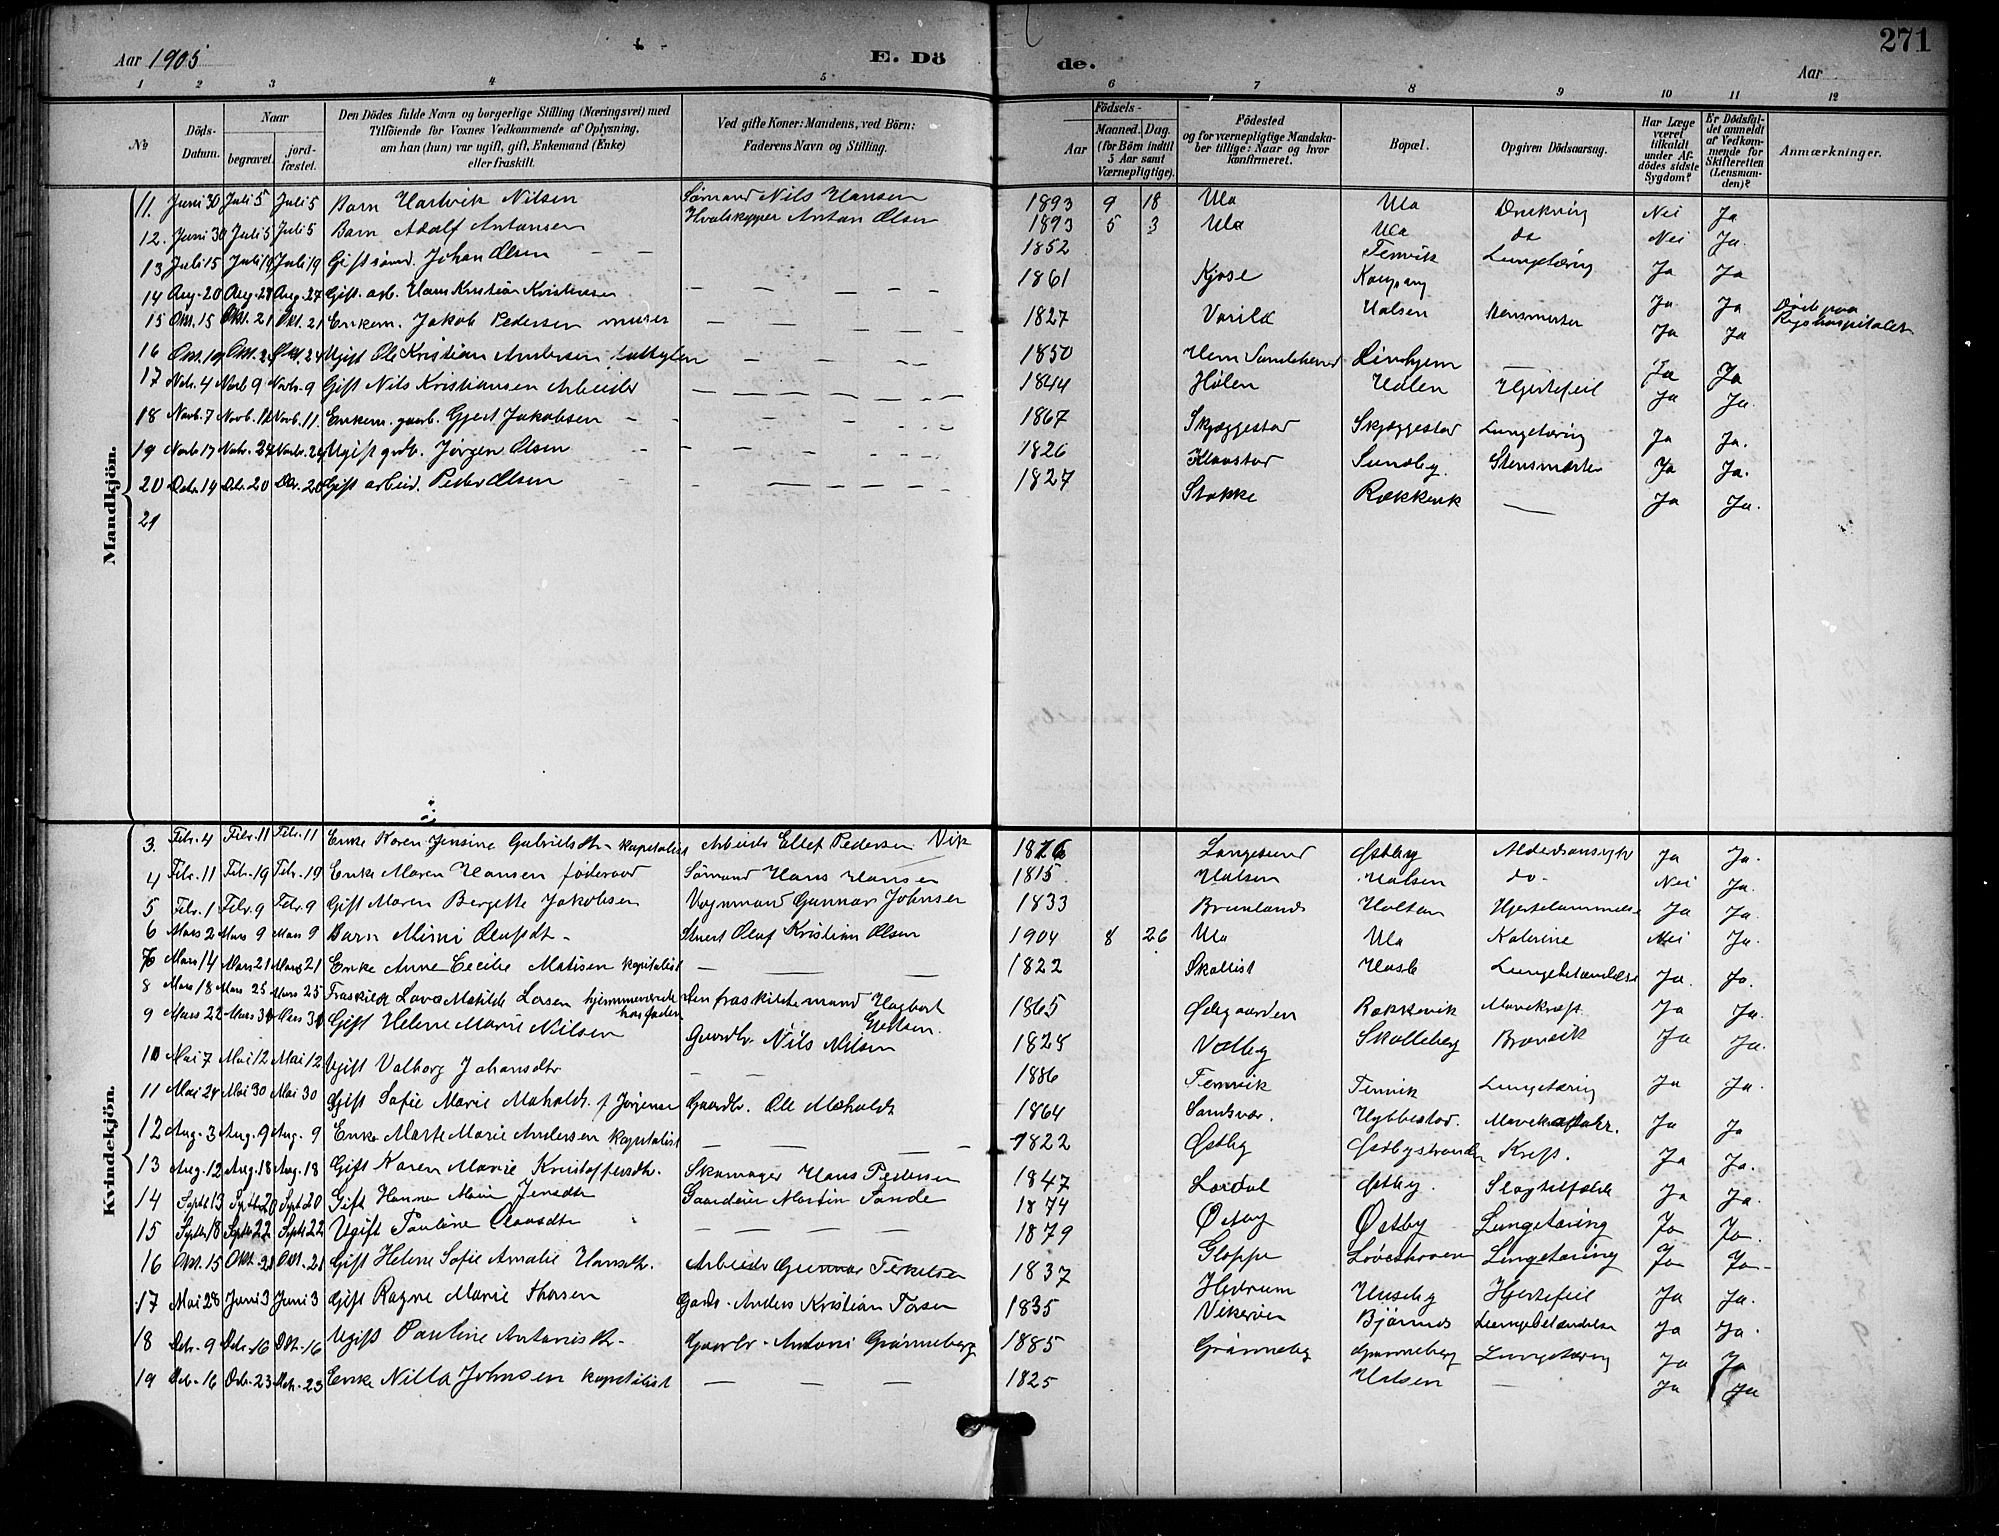 Aar 1905
E. Dö
de.
Aar
271
1 2 3 4 5 6 7 8 9 10 11 12
№
Döds-Datum.
Naar
begravet.
jord-fæstet.
Den Dödes fulde Navn og borgerlige Stilling (Næringsvei) med
Tilföiende for Voxnes Vedkommende af Oplysning,
om han (hun) var ugift, gift, Enkemand (Enke)
eller fraskilt.
Ved gifte Koner: Mandens, ved Børn:
Faderens Navn og Stilling.
Födsels-
Aar
Maaned. Dag.
(for Börn indtil
5 Aar samt
Værnepligtige).
Födested
og for værnepligtige Mandska-
ber tillige: Naar og hvor
konfirmeret.
Bopæl.
Opgiven Dödsaarsag.
Har Læge
været
tilkaldt
under Af-
dödes sidste
Sygdom?
Er Dödsfal-
det anmeldt
af Vedkom-
mende for
Skifteretten
(Lensman-
den)?
Anmærkninger.
Mandkjön.
11. Juni 30 Juli 5 Juli 5 Barn Hartvik Nilsen Sømand Nils Hansen 1893 9 18 Ula Ula Drukning Nei Ja
12. Juni 30 Juli 5 Juli 5 Barn Adolf Antonsen Hvalskypper Anton Olsen 1893 5 3 Ula Ula do Nei Ja.
13 Juli 15 Juli 19 Juli 19 Gift sömd. Johan Olsen 1852 Temvik Lungetæring Ja Ja
14 Aug. 20 Aug. 27 Aug. 27 Gift. arb. Hans Kristian Kristensen 1861 Kjose Kaupang Ja Ja Døde paa Rigshospitalet
15 Okt. 15 Okt. 21 Okt. 21 Enkem. Jakob Pedersen murer 1827 Varild Halsen Ja Ja
16 Okt. 24 Ugift Ole Kristian Andersen 1850 Hem Lindhjem Ja Ja
17 Nvb. 4 Novb. 9 Novb. 9 Gift Nils Kristiansen Arbeider 1844 Hølen Hølen Hjertefeil Ja Ja.
18 Novb. 7 Novb. 11 Enkem. gaarb. Gjert Jakobsen 1867 Skjæggestad Skjæggestad Lungetæring Ja Ja.
19 Novb 17 Novbr. 24 Ugift grdb. Jörgen Olsen 1826 Klavstad Sundby. Ja Ja.
20 Debr. 14 Dbr. 20 Dbr. 20 Gift arbeid. Peder Olsen 1827 Stokke Rækkevik Ja Ja.
21
Kvindekjön.
3. Febr. 4 Febr. 11 Febr. 11 Enke Karen Jensine Gabrielsdtr. kapitalist Arbeider Ellef Pedersen Vik Langesund Østby Ja Ja.
4 Febr. 11 Febr. 19 Febr. 19 Enke Maren Hansen føderaad Sømand Hans Hansen 1815 Halsen Halsen do. Nei Ja.
5 Febr. 1 Febr. 9 Febr. 9 Gift Maren Bergette Jakobsen Vognmand Gunnar Johnsen 1833 Brunlands Holtan Hjertelammelse Ja Ja.
6 Mars 2 Mars 9 Mars 9 Barn Mimi Olafsdt. Stuert Oluf Kristian Olsen 1904 8 26 Ula Ula Nei Ja.
7 Mars 14 Mars 21 Mars 21 Enke Anne Cecilie Matisen kapitalist 1822 Lungebetændelse Ja. Ja.
8 Mars 18 Mars 25 Mars 25 Fraskildt Matilde hjemmeværende hos faderen Den fraskilte mand Hagbart 1865 Ødegaarden Rækkevik Mavekræft Ja Ja.
9 Mars 22 Mars Mars Gift Helene Marie Nilsen Gaardbr. Nils Nilsen 1825 Valby Skalleberg Ja Ja.
10 Mai 7 Mai 12 Mai 12 Ugift Valborg Johansdtr 1886 Temvik Temvik Lungetæring Ja Ja.
11 Mai 24 Mai 30 Mai 30 Gift Sofie Marie Maholdt f Jørgense Gaardbr. Ole Maholdt 1864 Sandsvær. Hybbestad. Ja Ja
12 Aug. 3 Aug. 9 Aug. 9 Enke Marte Marie Andersen kapitalist 1822 Østby Østbystranden Kreft. Ja Ja.
13 Aug. 12 Aug. 18 Aug. 18 Gift Karen Marie Kristoffersdtr. Skomager Hans Pedersen 1847 Lardal Østby. Slagtilfælde Ja Ja.
14 Septb 13 Septb 20 Septb 20 Gift Hanna Marie Jensdtr Gaardeier Martin Sande 1874 Østby Østby Lungetæring Ja Ja.
15 Septb 18 Septb 22 Septb 22 Ugift Pauline Olavsdtr 1879 Gloppe Lungetæring Ja Ja
16 Okt. 15 Okt. 21 Okt. 21 Gift Helene Sofie Amalie Hansdtr. Arbeider Gunnar Terkelsen 1837 Hedrum Huseby Hjertefeil Ja Ja.
17 Mai 28 Juni 3 Juni 3 Gift Ragne Marie Thorsen Gardr. Anders Kristian Torsen 1835 Vikerøen Bjönnes Lungebetændelse Ja Ja.
18 Debr. 9 Debr. 16 Debr. 16 Ugift Pauline Antonisdtr. Gaardbr. Antoni Grønneberg 1885 Grønneberg Grønneberg Lungetæring Ja Ja
19 Deb. 16 Deb. 23 Debr. 23 Enke Nilla Johnsen kapitalist 1825 Halsen Ja Ja